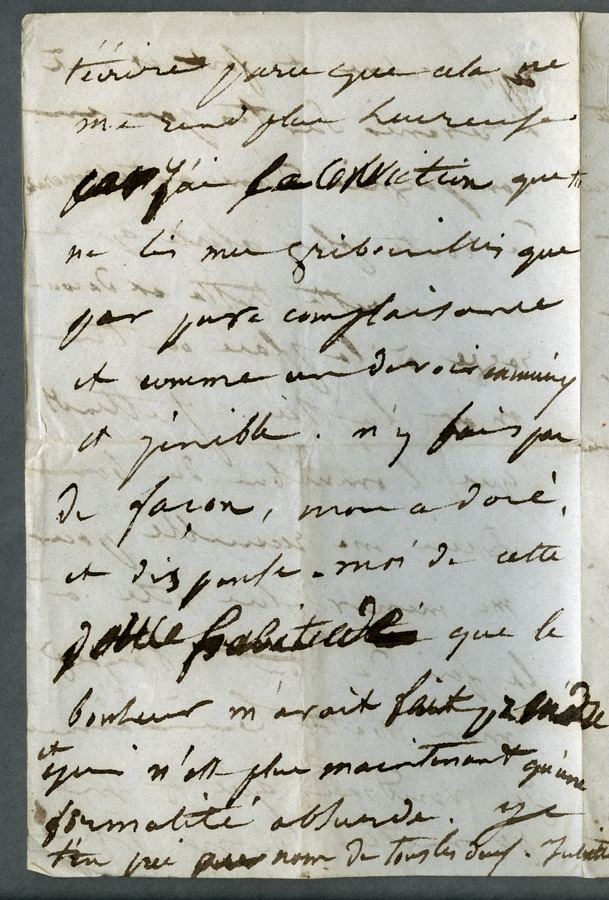 t'écrire parce que cela ne
me rend plus heureuse
car j'ai la conviction que tu
ne lis mes gribouillis que
par pure complaisance
et comme un devoir ennuyeux
et pénible. n'y fais pas
de façon, mon adoré,
et dispense-moi de cette
douce habitude que le
bonheur m'avait fait prendre
et qui n'est plus maintenant qu'une
formalité absurde. je
t'en prie au nom de tous les deux. Juliette